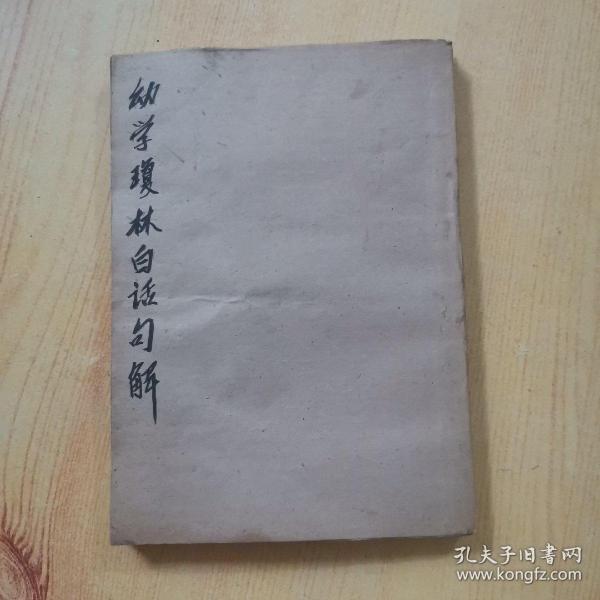 幼学瓊林白话句解
孔夫子旧書网
www.kongfz.com